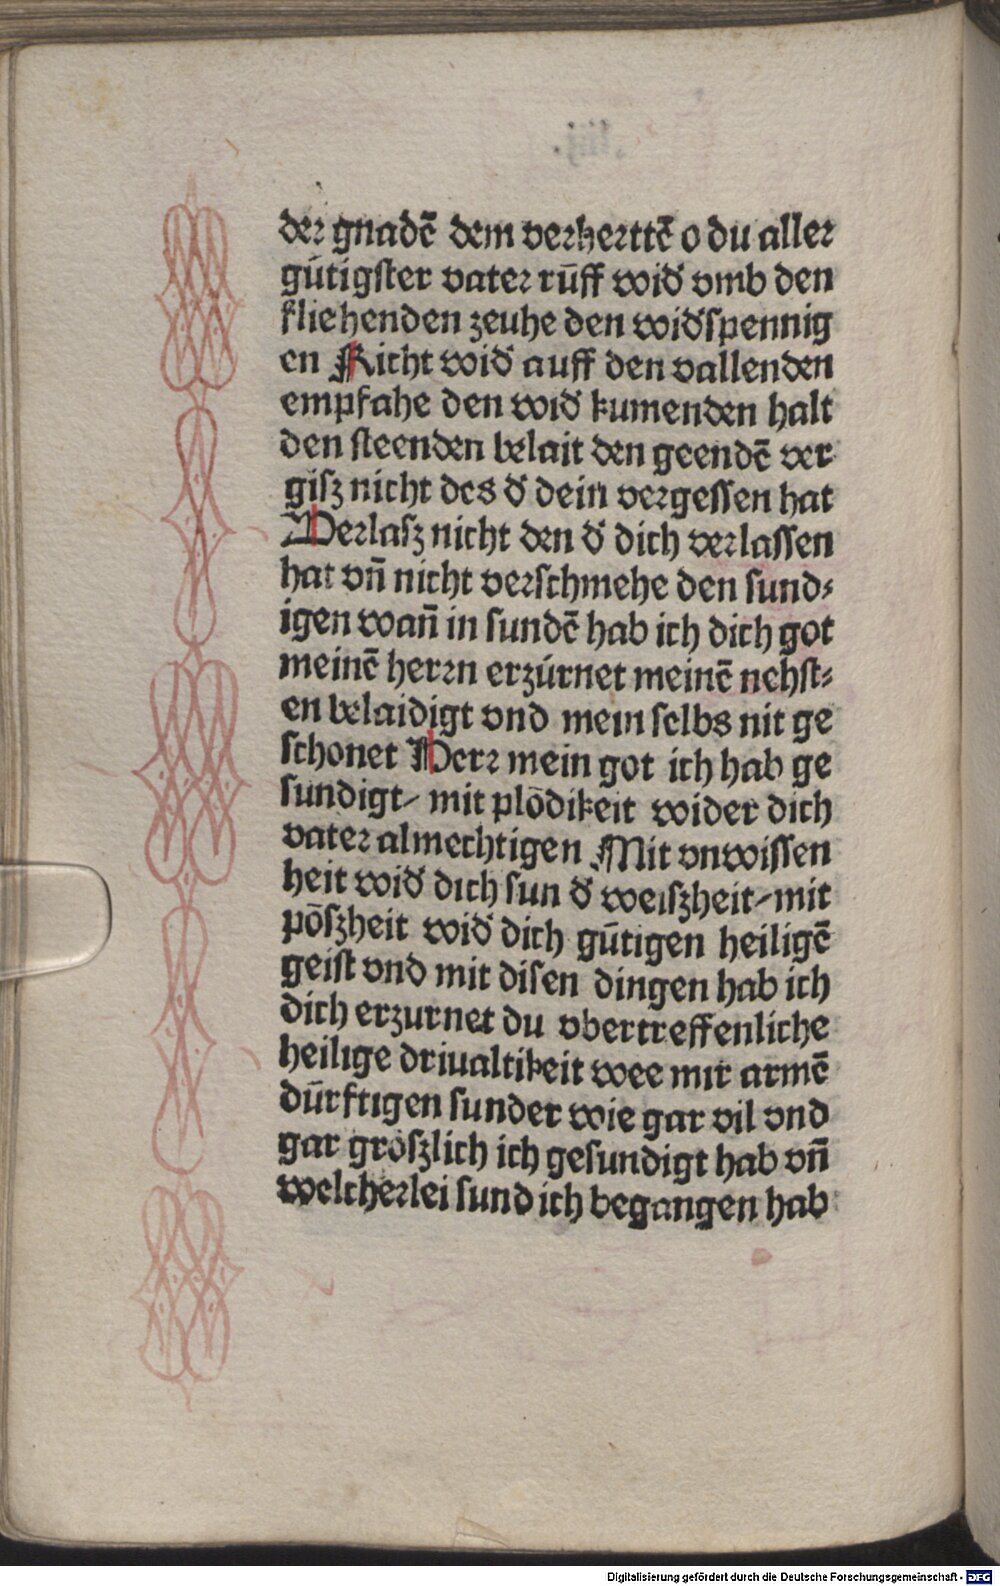 der gnadē dem verherttē o du aller
gütigster vater rūff wid̾ vmb den
fliehenden zeuhe den wid̾spennig
en Richt wid̾ auff den vallenden
empfahe den wid̾ kumenden halt
den steenden belait den geendē ver
gisz nicht des d̾ dein vergessen hat
Verlasz nicht den d̾ dich verlassen
hat vn̄ nicht verschmehe den sund⸗
igen wan̄ in sundē hab ich dich got
meinē herrn erzürnet meinē nehst⸗
en belaidigt vnd mein selbs nit ge
schonet Herr mein got ich hab ge
sundigt/ mit plödikeit wider dich
vater almechtigen Mit vnwissen
heit wid̾ dich sun d̾ weiszheit/mit
pöszheit wid̾ dich gūtigen heiligē
geist vnd mit disen dingen hab ich
dich erzurnet du vbertreffenliche
heilige driualtikeit wee mir armē
dūrftigen sunder wie gar vil vnd
gar gröszlich ich gesundigt hab vn̄
welcherlei sund ich begangen hab
Digitalisierung gefördert durch die Deutsche Forschungsgemeinschaft - DFG